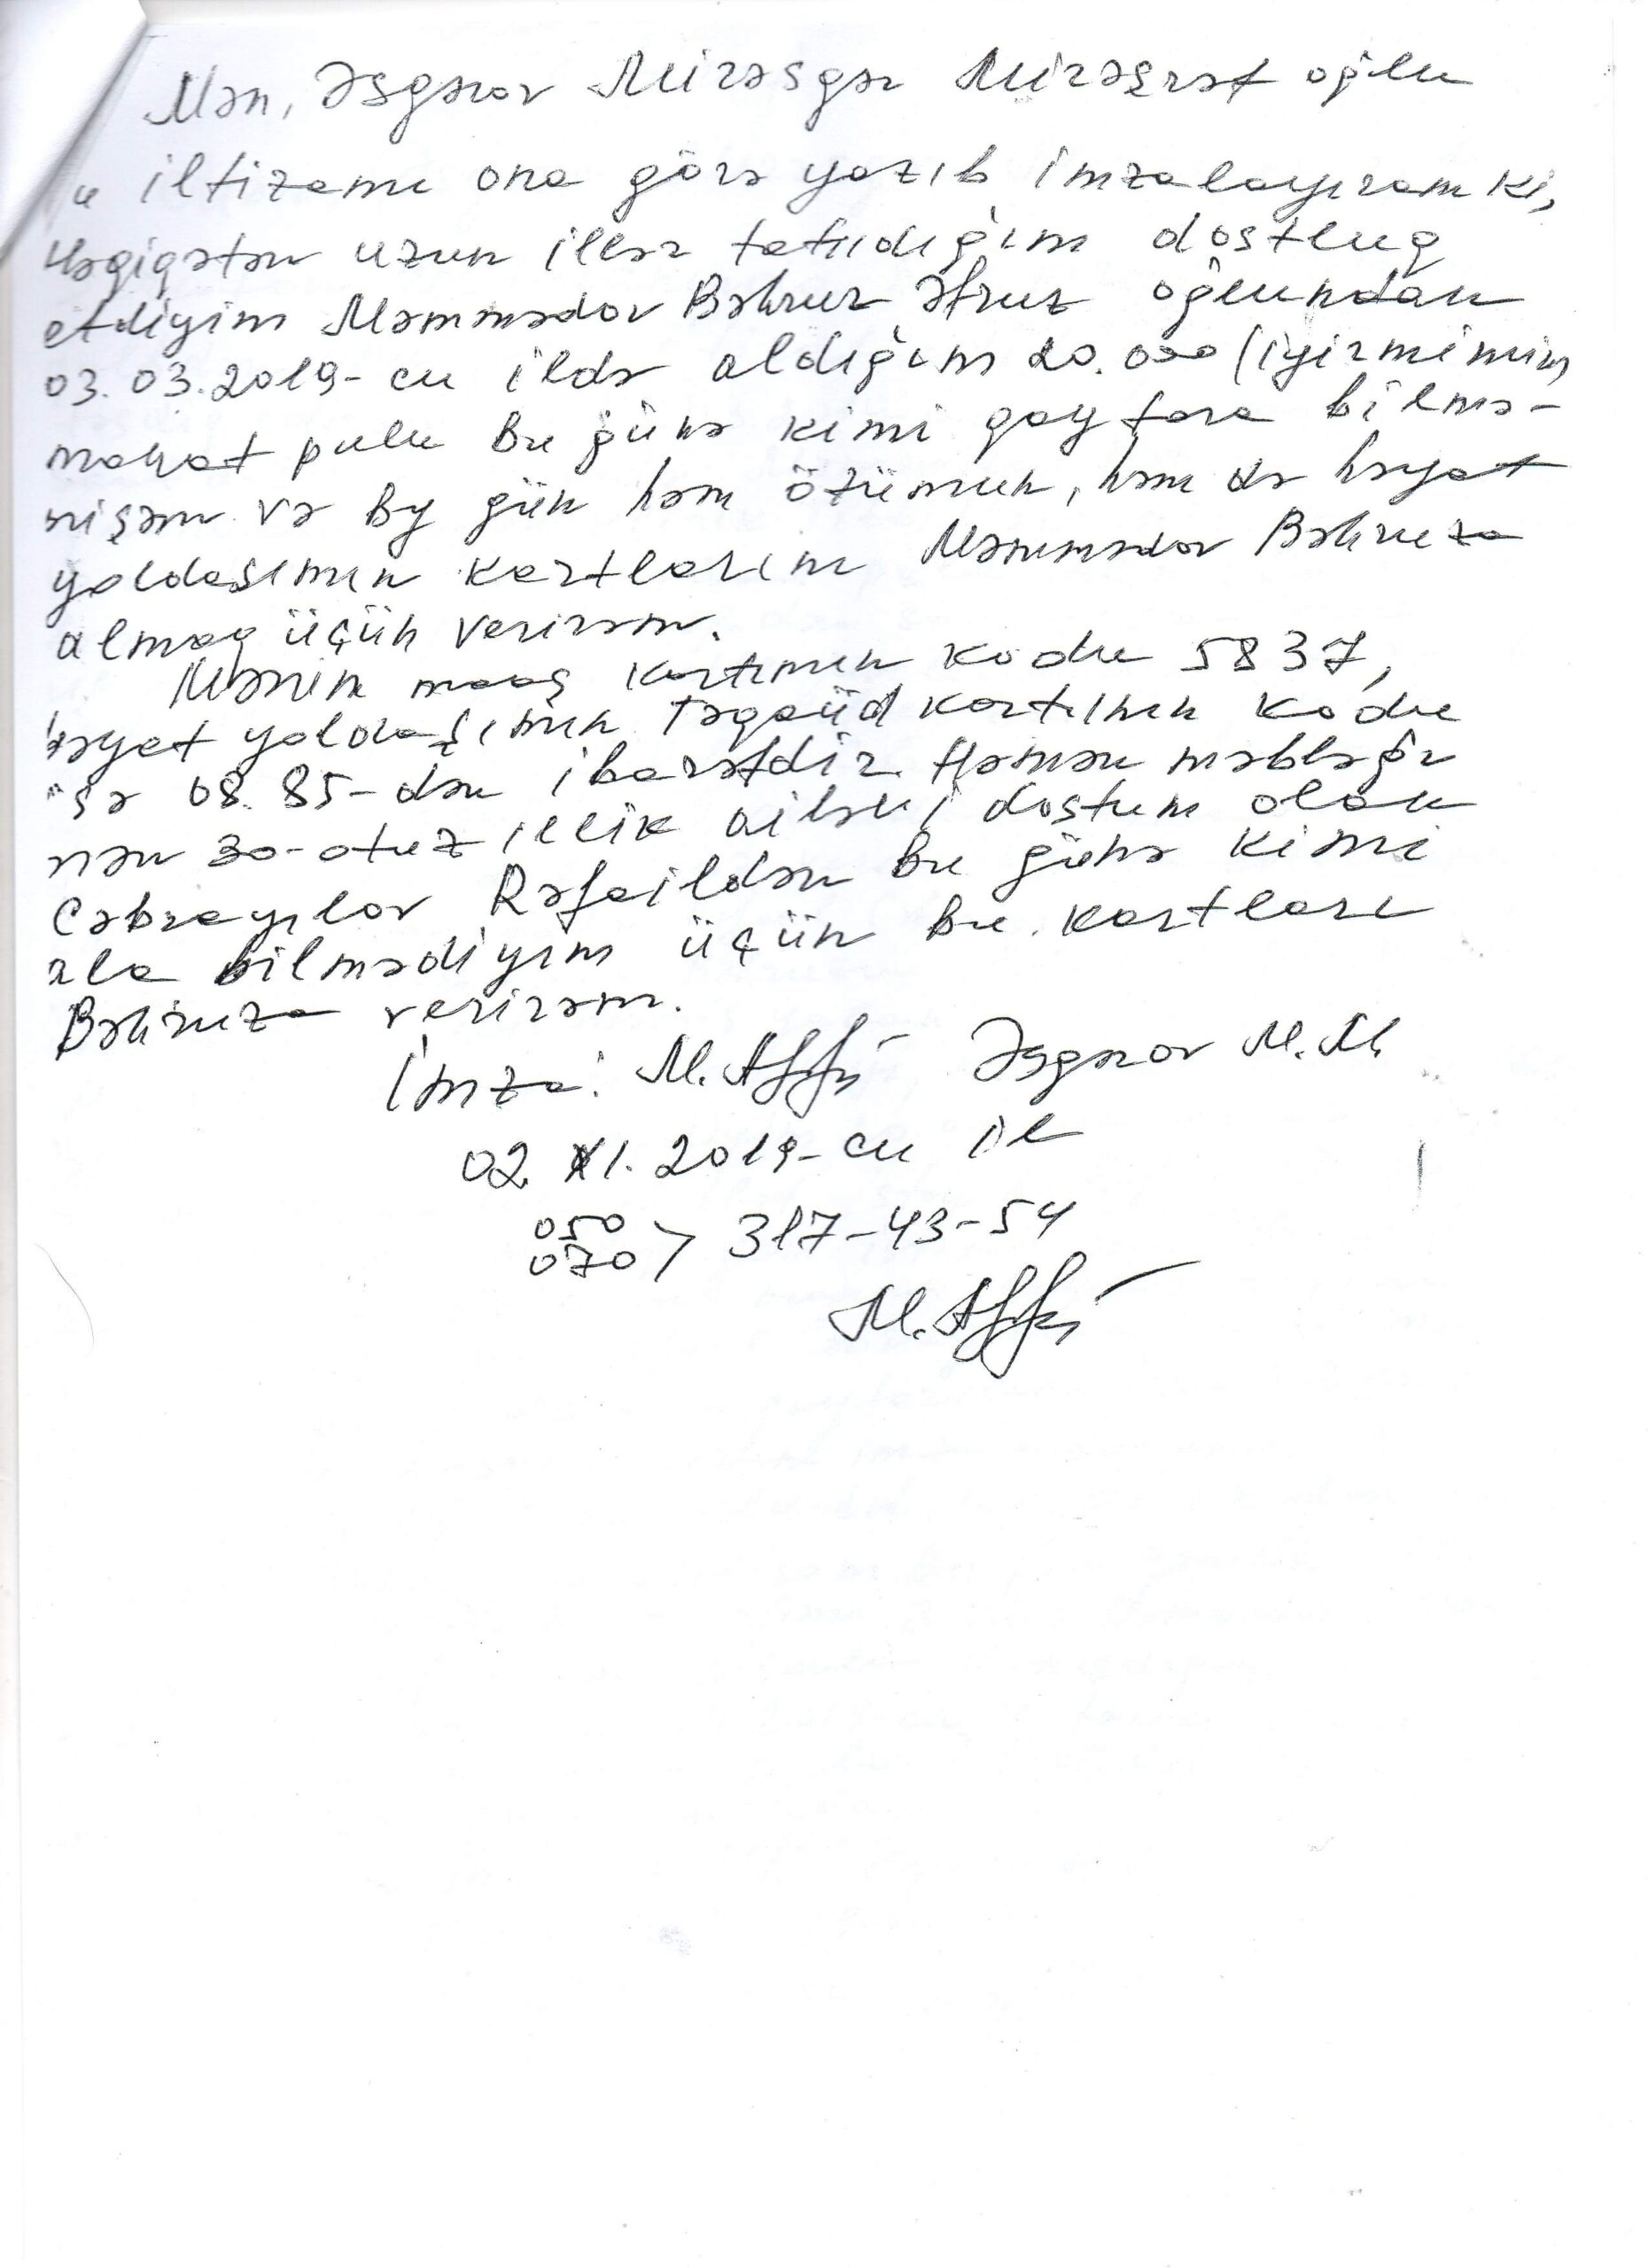 Mən, Əsgərov Mirəsgər Mirəşrəf oğlu
u iltizamı ona görə yazıb imzalayıram ki,
Həqiqətən uzun illər tanıdığım dostluq
etdiyim Məmmədov Bəhruz Əfruz oğlundan
03.03.2019-cu ildə aldığım 20.000 (iyirmi min
manat pulu bu günə kimi qaytara bilmə-
mişəm və By gün həm özümün, həm də həyat
yoldaşımın kartlarını Məmmədov Bəhruza
almaq üçün verirəm.
Mənim maaş kartımın kodu 5837,
həyat yoldaşımın Təqaüd kartının kodu
isə 08.85-dən ibarətdir. Həmən məbləği
mən 30-otuz illik ailəvi dostum olan
Cəbrayılov Rəfaildən bu günə kimi
ala bilmədiyim üçün bu kartları
Bəhruza verirəm.
İmza: Əsgərov M.M.
02. XI. 2019-cu il
050
070 > 317-43-54